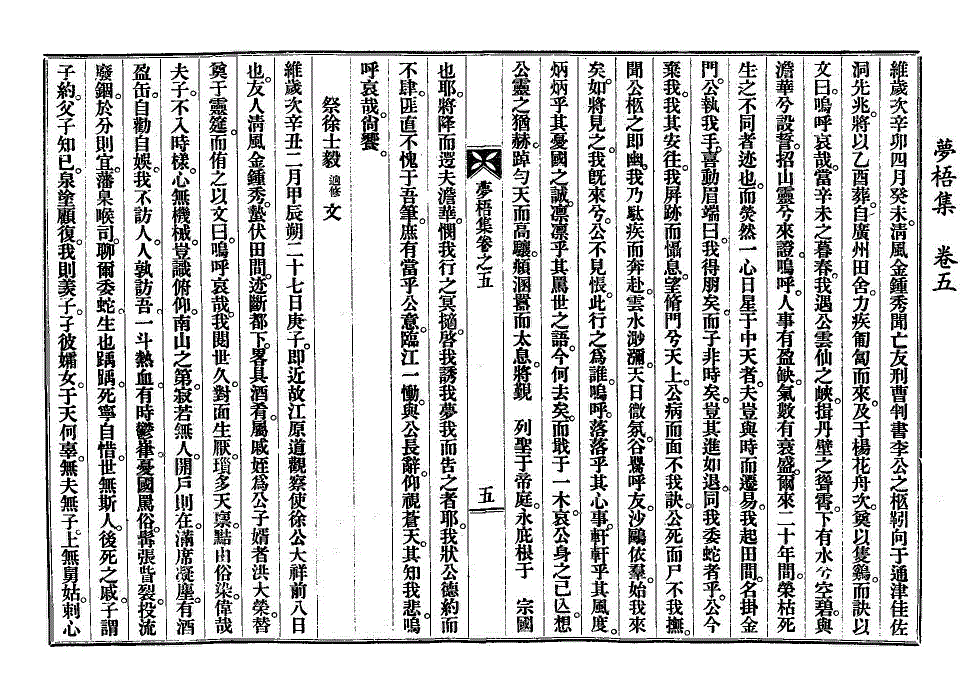 夢梧集 卷五
維歲次辛卯四月癸未淸風金鍾秀聞亡友刑曹判書李公之柩靷向于通津佳佐
洞先兆將以乙酉葬自廣州田舍力疾匍匐而來及于楊花舟次奠以隻鷄而訣以
文曰嗚呼哀哉當辛未之暮春我遇公雲仙之峽揖丹壁之聳霄下有水兮空碧與
澹華兮設誓招山靈兮來證嗚呼人事有盈缺氣數有衰盛爾來二十年間榮枯死
生之不同者迹也而熒然一心日星于中天者夫豈與時而遷易我起田間名掛金
門公執我手喜動眉端曰我得朋矣而子非時矣豈其進如退同我委蛇者乎公今
棄我我其安往我屛跡而懾息望脩門兮天上公病而面不我訣公死而尸不我撫
聞公柩之卽幽我乃駄疾而奔赴雲水渺瀰天日微氛谷鸎呼友沙鷗依羣始我來
矣如將見之我旣來兮公不見悵此行之爲誰嗚呼落落乎其心事軒軒乎其風度
炳炳乎其憂國之誠凛凛乎其罵世之語今何去矣而戢于一木哀公身之已亾想
公靈之猶赫踔勻天而高驤頫溷囂而太息將覲 列聖于帝庭永庇根于 宗國
夢梧集卷之五 五
也耶將降而遌夫澹華憫我行之冥擿啓我誘我夢我而告之者耶我狀公德約而
不肆匪直不愧于吾筆庶有當乎公意臨江一慟與公長辭仰視蒼天其知我悲嗚
呼哀哉尙饗
祭徐士毅 逈修 文
維歲次辛丑二月甲辰朔二十七日庚子卽近故江原道觀察使徐公大祥前八日
也友人淸風金鍾秀蟄伏田間迹斷都下畧具酒肴屬戚姪爲公子婿者洪大榮替
奠于靈筵而侑之以文曰嗚呼哀哉我閱世久對面生厭瑣多天禀黠由俗染偉哉
夫子不入時樣心無機械豈識俯仰南山之第寂若無人開戶則在滿席凝塵有酒
盈缶自勸自娛我不訪人人孰訪吾一斗熱血有時鬱嵂憂國罵俗髯張眥裂投流
廢錮於分則宜藩臬喉司聊爾委蛇生也踽踽死寧自惜世無斯人後死之戚子謂
子約父子知已泉塗顧復我則羨子孑彼孀女于天何辜無夫無子上無舅姑刺心